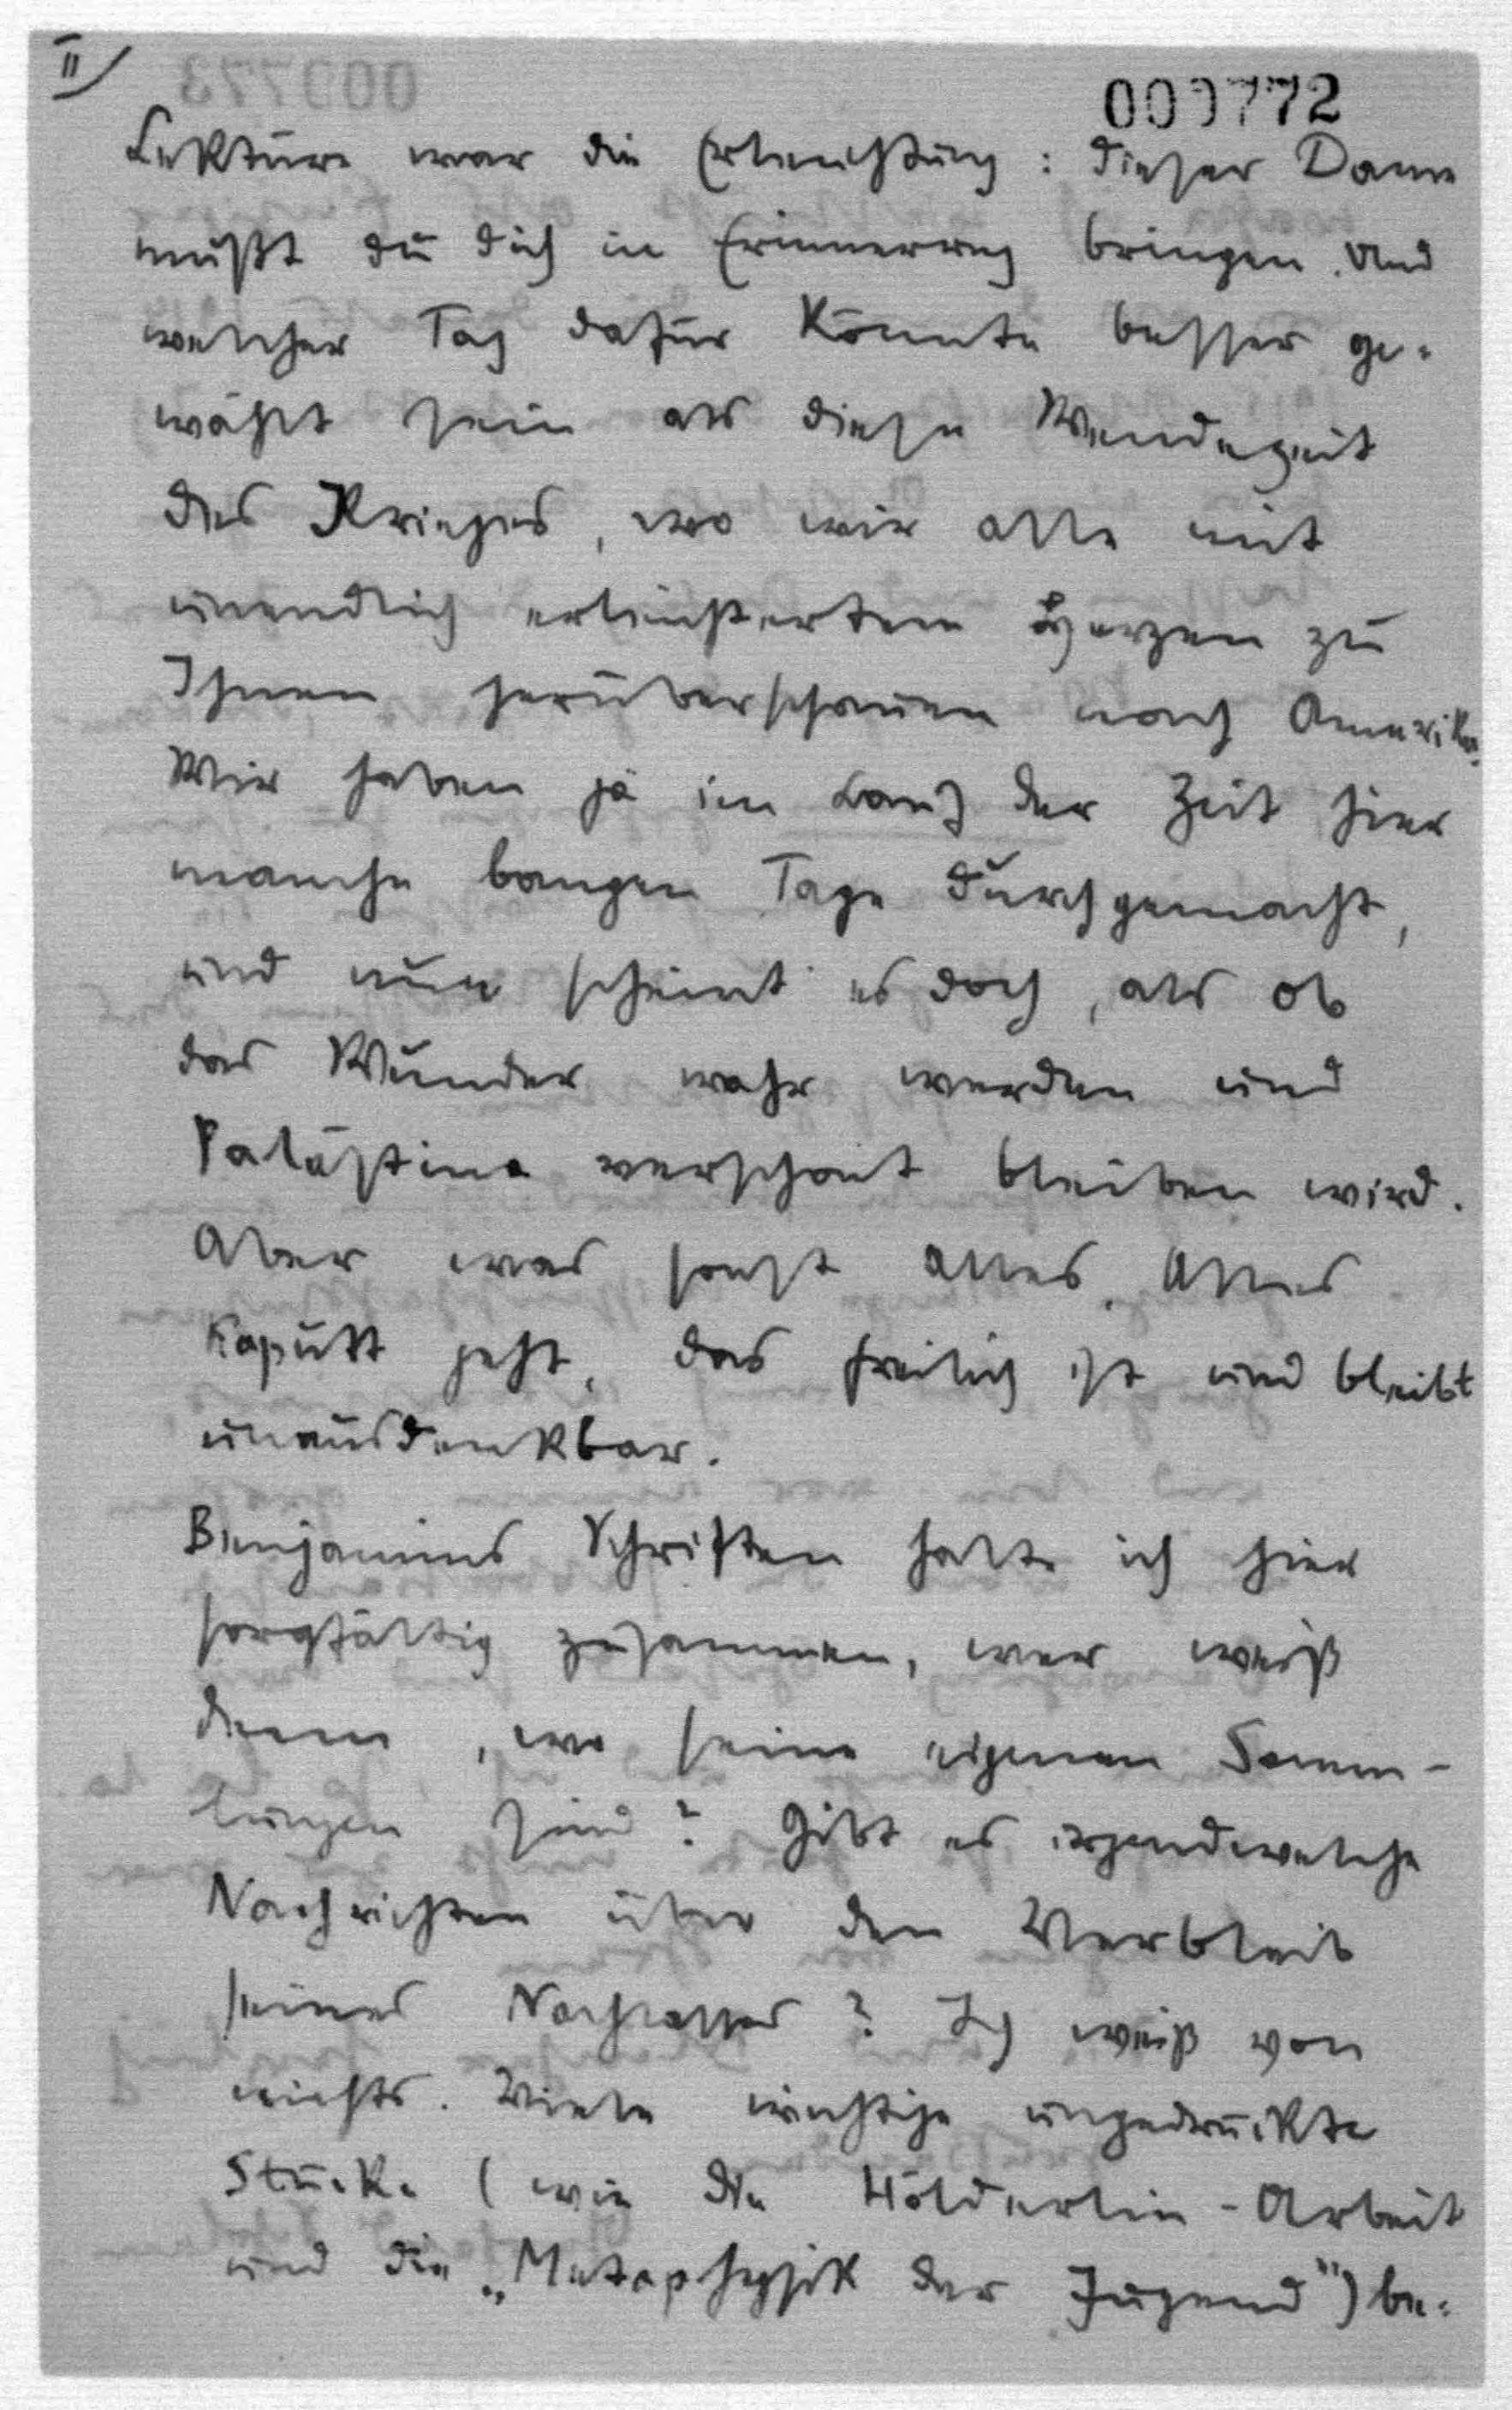 II
009772
Lektüre war die Erleuchtung: dieser Dame
mußt du dich in Erinnerung bringen. Und
welcher Tag dafür könnte besser ge-
wählt sein als diese Wendezeit
des Krieges, wo wir alle mit
unendlich erleichtertem Herzen zu
Ihnen herüberschauen nach Amerika.
Wir haben ja im Lauf der Zeit hier
manche bangen Tage durchgemacht,
und nun scheint es doch, als ob
das Wunder wahr werden und
Palästina verschont bleiben wird.
Aber was sonst alles, Alles
kaputt geht, das freilich ist und bleibt
unausdenkbar.
Benjamins Schriften halte ich hier
sorgfältig zusammen, wer weiß
denn, wo seine eigenen Samm-
lungen sind? Gibt es irgendwelche
Nachrichten über den Verbleib
seines Nachlasses? Ich weiß von
nichts. Viele wichtige ungedruckte
Stücke (wie die Hölderlin-Arbeit
und die „Metaphysik der Jugend") be-